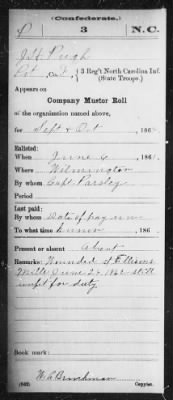 (Confederate.)
P 3 N.C.
Jas Pugh
Pvt, Co. F, 3 Reg't North Carolina Inf.
(State Troops.)
Appears on
Company Muster Roll
of the organization named above,
for Sept & Oct, 186
Enlisted:
When June 6, 1861.
Where Wilmington
By whom Capt. Parsley
Period
Last paid:
By whom Date of pay un
To what time known, 186
Present or absent Absent
Remarks: Wounded at Ellisons
Mills June 26 1862 still
unfit for duty
Book mark:
(642) Copyist.